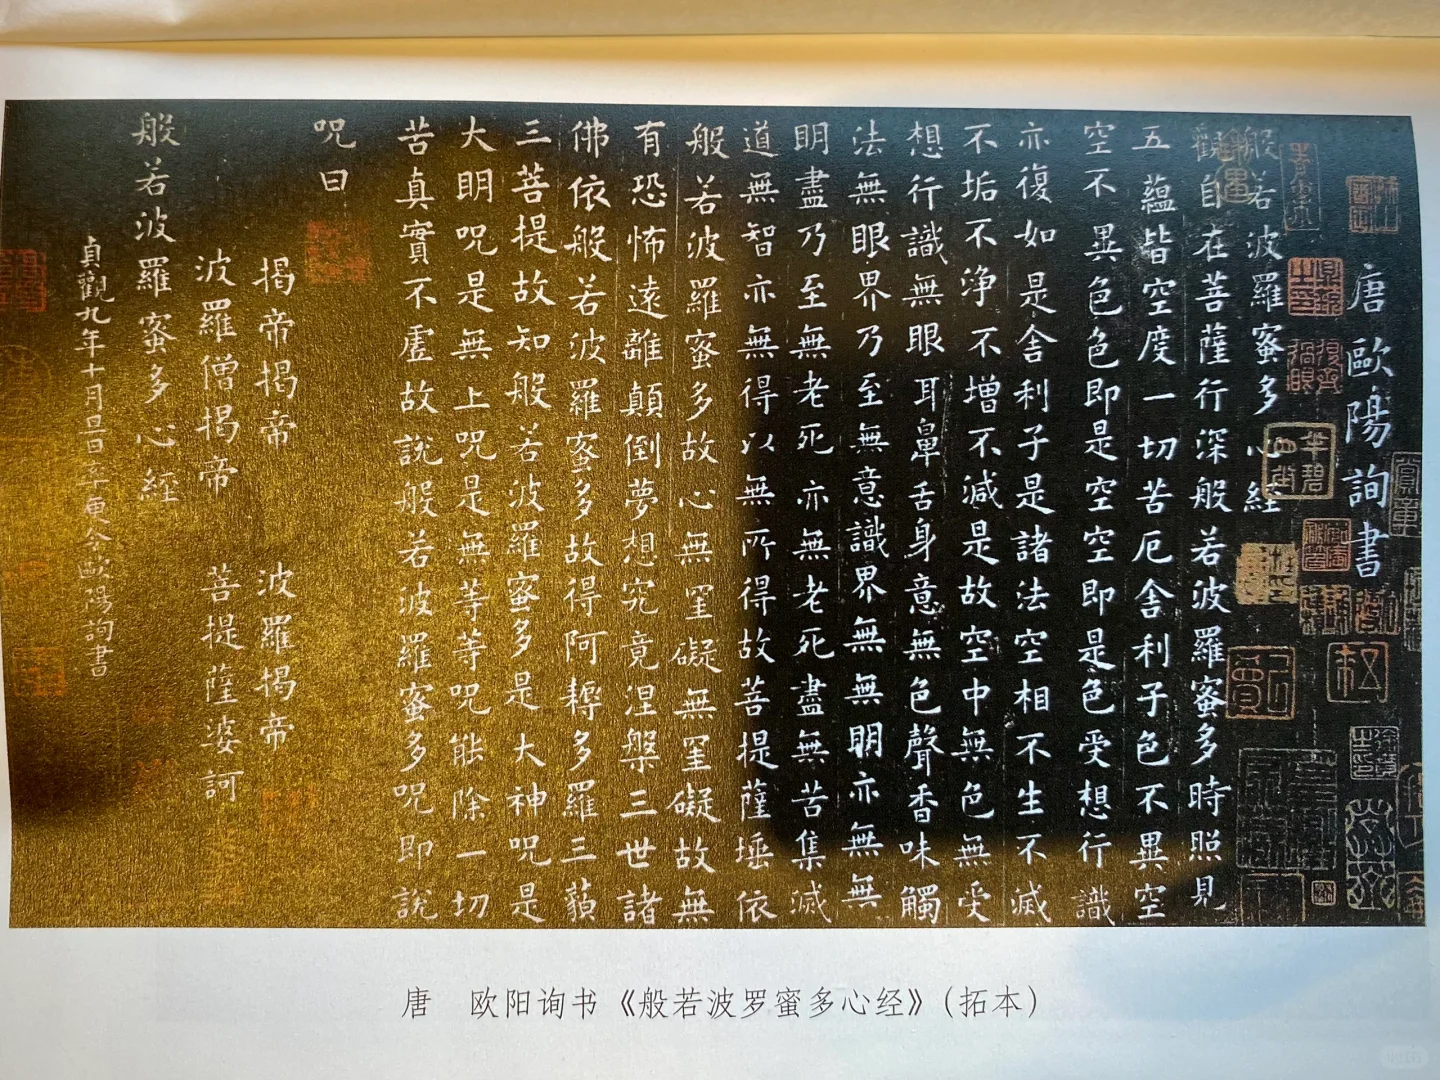 唐歐陽詢書
般若波羅蜜多心經
觀自在菩薩行深般若波羅蜜多時照見
五蘊皆空度一切苦厄舍利子色不異空
空不異色色即是空空即是色受想行識
亦復如是舍利子是諸法空相不生不滅
不垢不淨不增不減是故空中無色無受
想行識無眼耳鼻舌身意無色聲香味觸
法無眼界乃至無意識界無無明亦無無
明盡乃至無老死亦無老死盡無苦集滅
道無智亦無得以無所得故菩提薩埵依
般若波羅蜜多故心無罣礙無罣礙故無
有恐怖遠離顛倒夢想究竟涅槃三世諸
佛依般若波羅蜜多故得阿耨多羅三藐
三菩提故知般若波羅蜜多是大神咒是
大明咒是無上咒是無等等咒能除一切
苦真實不虛故說般若波羅蜜多咒即說
咒曰
揭帝揭帝 波羅揭帝
波羅僧揭帝 菩提薩婆訶
般若波羅蜜多心經
貞觀九年十月旦日率更令歐陽詢書
唐 欧阳询书《般若波罗蜜多心经》（拓本）